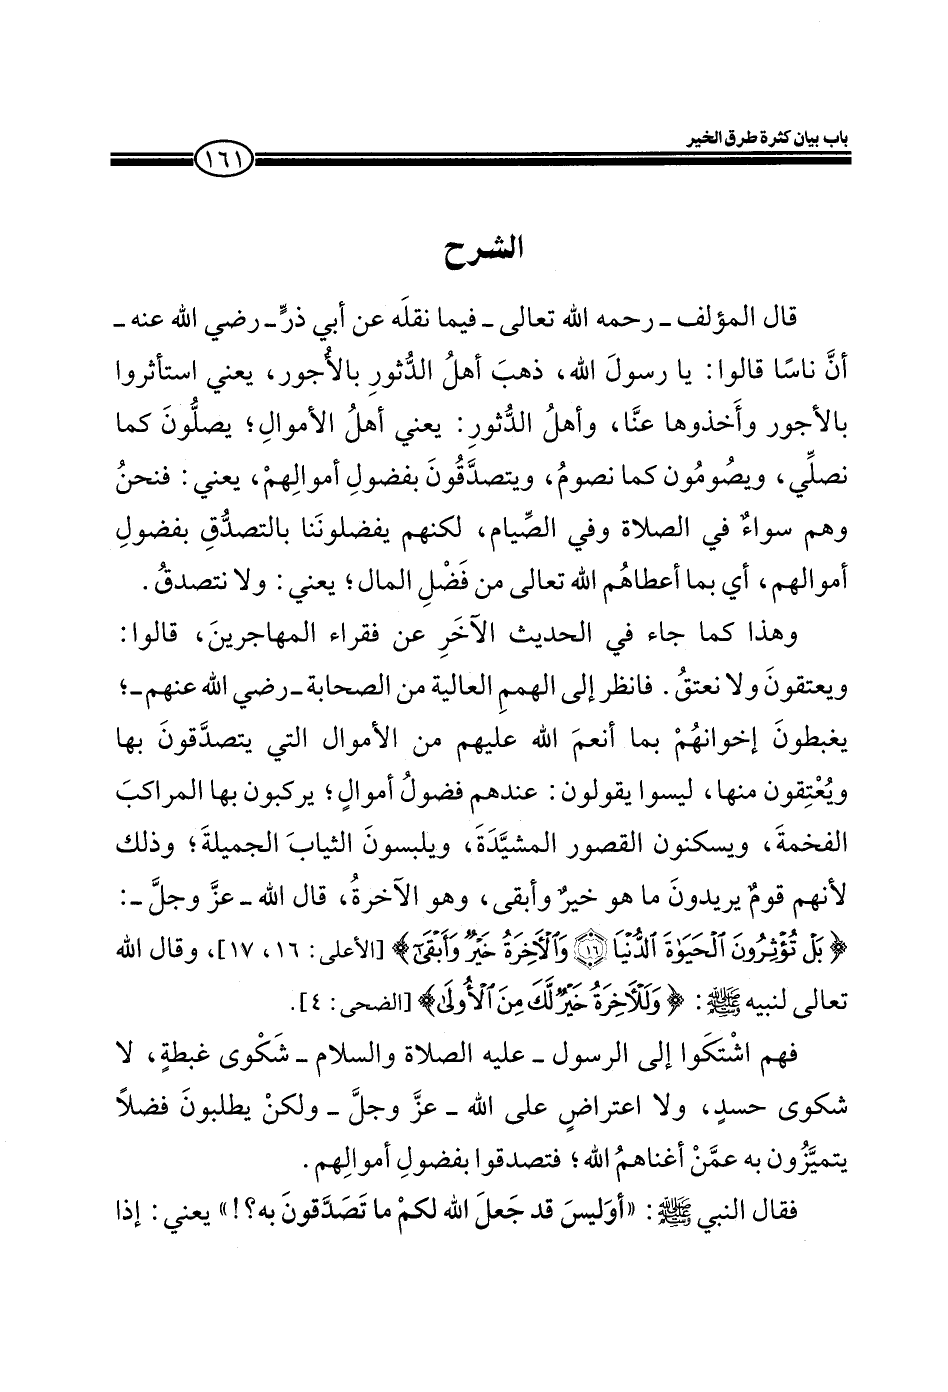 باب بيان كثرة طرق الخير
١٦١
الشرح
قال المؤلف ـ رحمه الله تعالى ـ فيما نقلَه عن أبي ذرٍّ ـ رضي الله عنه ـ
أنَّ ناسًا قالوا: يا رسولَ الله، ذهبَ أهلُ الدُّثورِ بالأُجور، يعني استأثروا
بالأجور وأَخذوها عنَّا، وأهلُ الدُّثورِ: يعني أهلُ الأموالِ؛ يصلُّونَ كما
نصلِّي، ويصُومُون كما نصومُ، ويتصدَّقُونَ بفضولِ أموالِهمْ، يعني: فنحنُ
وهم سواءٌ في الصلاة وفي الصِّيام، لكنهم يفضلونَنا بالتصدُّقِ بفضولِ
أموالهم، أي بما أعطاهُم الله تعالى من فَضْلِ المال؛ يعني: ولا نتصدقُ.
وهذا كما جاء في الحديث الآخَرِ عن فقراء المهاجرينَ، قالوا:
ويعتقونَ ولا نعتقُ. فانظر إلى الهممِ العالية من الصحابة ـ رضي الله عنهم ـ؛
يغبطونَ إخوانهُمْ بما أنعمَ الله عليهم من الأموال التي يتصدَّقون بها
ويُعْتِقون منها، ليسوا يقولون: عندهم فضولُ أموالٍ؛ يركبون بها المراكبَ
الفخمةَ، ويسكنون القصور المشيَّدَة، ويلبسونَ الثيابَ الجميلةَ؛ وذلك
لأنهم قومٌ يريدونَ ما هو خيرٌ وأبقى، وهو الآخرةُ، قال الله ـ عزَّ وجلَّ ـ:
﴿بَلْ تُؤْثِرُونَ الْحَيَوٰةَ الدُّنْيَا ۝١٦ وَالْأَخِرَةُ خَيْرٌ وَأَبْقَىٰٓ﴾ [الأعلى: ١٦، ١٧]، وقال الله
تعالى لنبيه ﷺ: ﴿وَلَلْأَخِرَةُ خَيْرٌ لَّكَ مِنَ الْأُولَىٰ﴾ [الضحى: ٤].
فهم اشْتكَوا إلى الرسول ـ عليه الصلاة والسلام ـ شَكْوى غبطةٍ، لا
شكوى حسدٍ، ولا اعتراضٍ على الله ـ عزَّ وجلَّ ـ ولكنْ يطلبونَ فضلاً
يتميَّزُون به عمَّنْ أغناهمُ الله؛ فتصدقوا بفضولِ أموالِهم.
فقال النبي ﷺ: «أوَليسَ قد جَعلَ الله لكمْ ما تَصَدَّقونَ به؟!» يعني: إذا